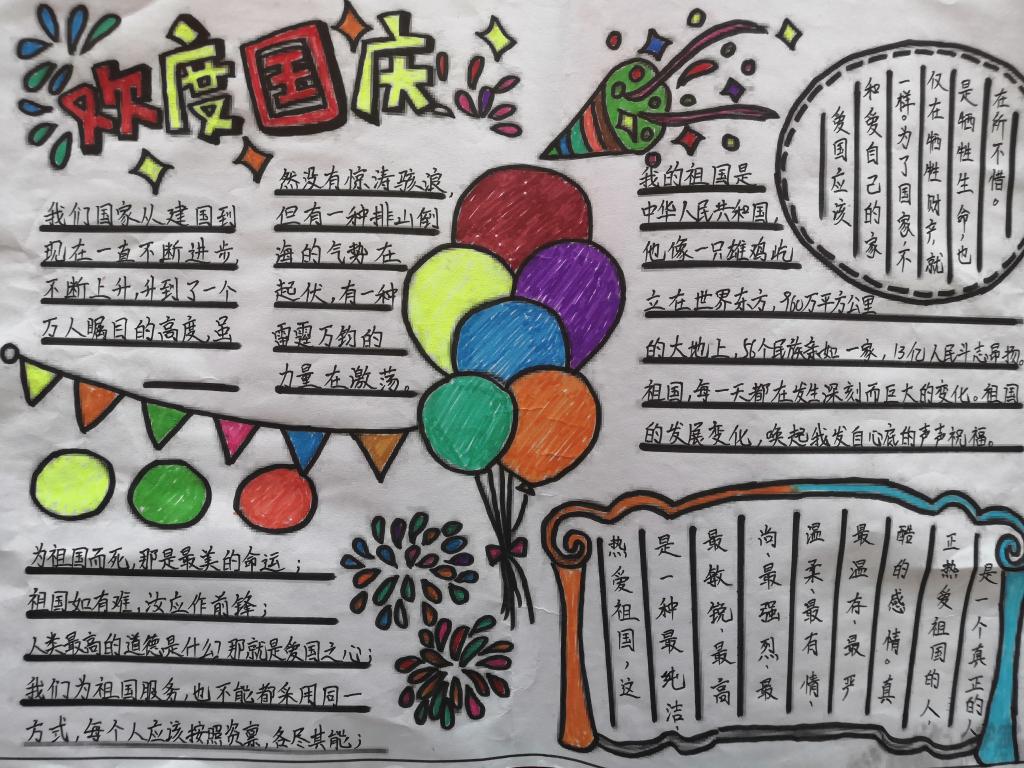 欢度国庆
我们国家从建国到
现在一直不断进步
不断上升,升到了一个
万人瞩目的高度,虽
然没有惊涛骇浪,
但有一种排山倒
海的气势在
起伏,有一种
雷霆万钧的
力量在激荡。
我的祖国是
中华人民共和国,
他像一只雄鸡屹
立在世界东方,960万平方公里
的大地上,56个民族亲如一家,13亿人民斗志昂扬。
祖国,每一天都在发生深刻而巨大的变化。祖国
的发展变化,唤起我发自心底的声声祝福。
在所不惜。
是牺牲生命,也
仅在牺牲财产,就
一样。为了国家不
和爱自己的家
爱国应该
为祖国而死,那是最美的命运;
祖国如有难,汝应作前锋;
人类最高的道德是什么?那就是爱国之心;
我们为祖国服务,也不能都采用同一
方式,每个人应该按照资禀,各尽其能;
热爱祖国,这
是一种最纯洁、
最敏锐、最高
尚、最强烈、最
温柔、最有情、
最温存、最严
酷的感情。真
正热爱祖国的人,
是一个真正的人